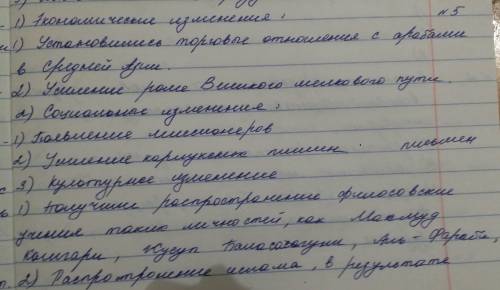 №5
1) Экономические изменения:
1) Установились торговые отношения с арабами
в Средней Азии.
2) Усиление роли Великого шелкового пути.
2) Социальные изменения:
1) Появление миссионеров
2) Усиление карлукских племен
3) Культурное изменение
1) Получили распространение философские
учения таких личностей, как Махмуд
Кашгари, Жусуп Баласагуни, Аль-Фараби,
2) Распространение ислама, в результате